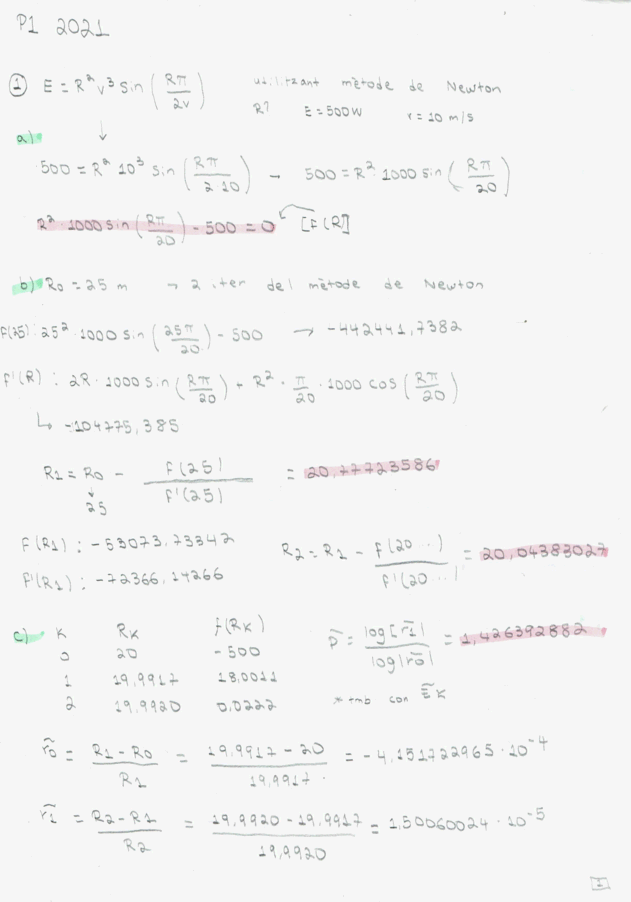 P1 2021
① E = R² v³ sin (Rπ/2v) utilitzant mètode de Newton
R? E = 500W v = 10 m/s
a)
500 = R² 10³ sin (Rπ/2 10) → 500 = R² 1000 sin (Rπ/20)
R² · 1000 sin (Rπ/20) - 500 = 0 [F(R)]
b) R0 = 25 m → 2 iter del mètode de Newton
F(25): 25² · 1000 sin (25π/20) - 500 → -442441,7382
F'(R) : 2R · 1000 sin (Rπ/20) + R² · π/20 · 1000 cos (Rπ/20)
↳ -104775,385
R1 = R0 - F(25)/F'(25) = 20,77723586
25
F(R1) : -53073,73342
F'(R1) : -72366,14266
R2 = R1 - F(20..)/F'(20..) = 20,04383027
c) K RK f(RK)
0 20 -500
1 19,9917 18,0011
2 19,9920 0,0222
p̃ = log|r̃1|/log|r̃0| = 1,426392882
* tmb con ẼK
r̃0 = R1 - R0/R1 = 19,9917 - 20/19,9917 = -4,151722965 · 10⁻⁴
r̃1 = R2 - R1/R2 = 19,9920 - 19,9917/19,9920 = 1,50060024 · 10⁻⁵
1